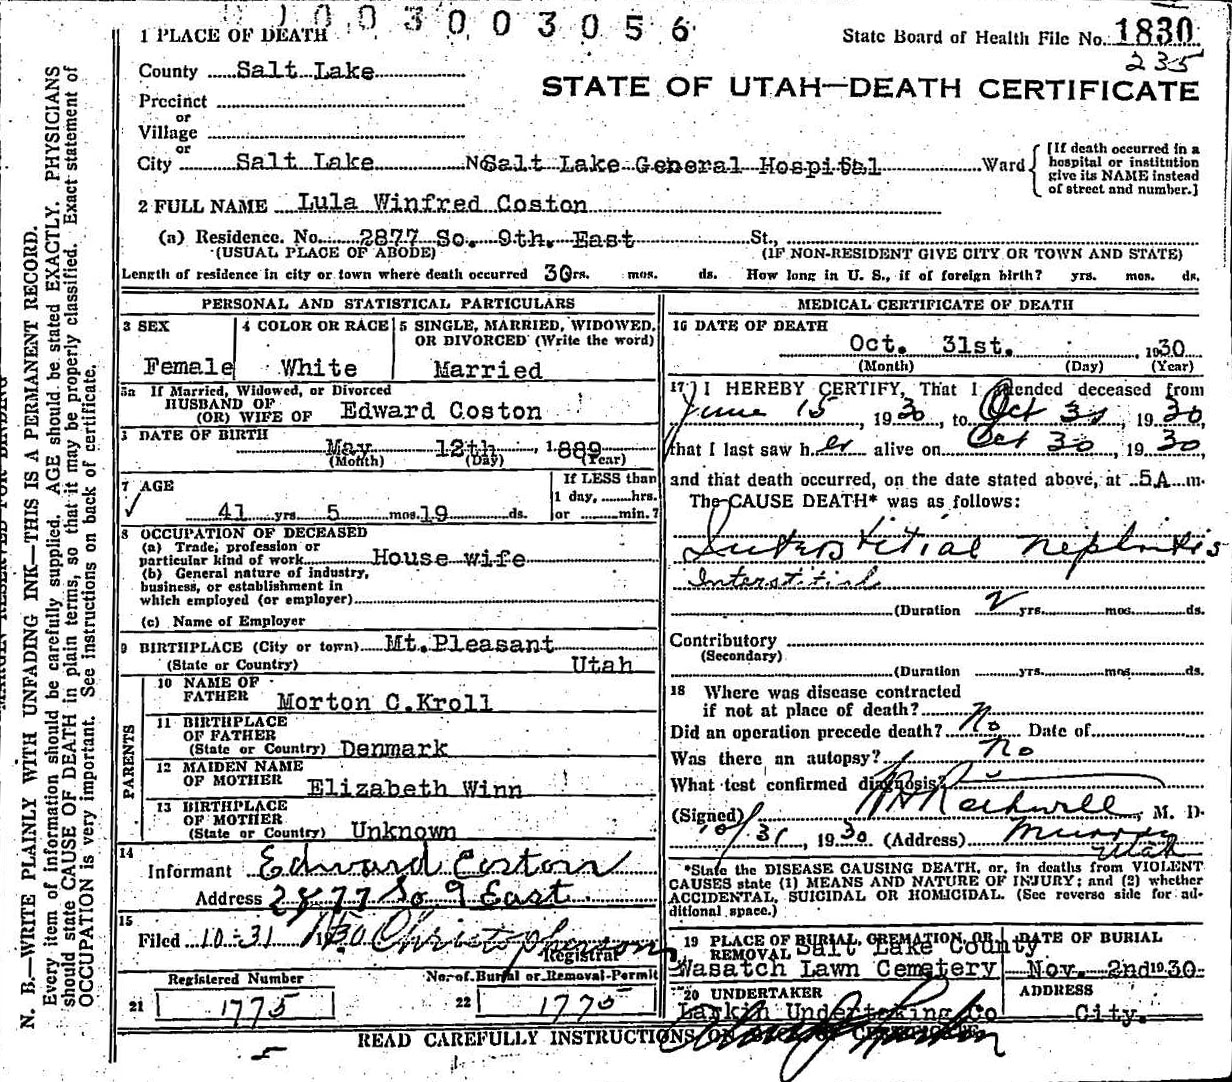 1003003056
1 PLACE OF DEATH
State Board of Health File No. 1830
235
County Salt Lake
STATE OF UTAH—DEATH CERTIFICATE
Precinct
or
Village
or
City Salt Lake No Salt Lake General Hospital St. Ward
[If death occurred in a
hospital or institution
give its NAME instead
of street and number.]
2 FULL NAME Lula Winfred Coston
(a) Residence. No. 2877 So. 9th. East St.,
(USUAL PLACE OF ABODE) (IF NON-RESIDENT GIVE CITY OR TOWN AND STATE)
Length of residence in city or town where death occurred 30 rs. mos. ds. How long in U. S., if of foreign birth? yrs. mos. ds.
PERSONAL AND STATISTICAL PARTICULARS
3 SEX
Female
4 COLOR OR RACE
White
5 SINGLE, MARRIED, WIDOWED,
OR DIVORCED (Write the word)
Married
5a If Married, Widowed, or Divorced
HUSBAND OF
(OR) WIFE OF Edward Coston
6 DATE OF BIRTH
May 12th, 1889
(Month) (Day) (Year)
7 AGE
41 yrs. 5 mos. 19 ds.
If LESS than
1 day, hrs.
or min.?
8 OCCUPATION OF DECEASED
(a) Trade, profession or
particular kind of work House wife
(b) General nature of industry,
business, or establishment in
which employed (or employer)
(c) Name of Employer
9 BIRTHPLACE (City or town) Mt. Pleasant
(State or Country) Utah
PARENTS
10 NAME OF
FATHER Morton C. Kroll
11 BIRTHPLACE
OF FATHER
(State or Country) Denmark
12 MAIDEN NAME
OF MOTHER Elizabeth Winn
13 BIRTHPLACE
OF MOTHER
(State or Country) Unknown
14
Informant Edward Coston
Address 2877 So 9 East
15
Filed 10-31 1930 Christopherson
Registrar
Registered Number
21 1775
No. of Burial or Removal Permit
22 1775
MEDICAL CERTIFICATE OF DEATH
16 DATE OF DEATH
Oct. 31st. , 1930
(Month) (Day) (Year)
17 I HEREBY CERTIFY, That I attended deceased from
June 15 , 1930, to Oct 31 , 1930,
that I last saw her alive on Oct 30 , 1930,
and that death occurred, on the date stated above, at 5A m.
The CAUSE DEATH* was as follows:
Interstitial Nephritis
Interstitial
(Duration 2 yrs. mos. ds.
Contributory
(Secondary)
(Duration yrs. mos. ds.
18 Where was disease contracted
if not at place of death?
Did an operation precede death? No Date of
Was there an autopsy? No
What test confirmed diagnosis?
(Signed) Rockwell, M. D.
10/31, 1930 (Address) Murray
Utah
*State the DISEASE CAUSING DEATH, or, in deaths from VIOLENT
CAUSES state (1) MEANS AND NATURE OF INJURY; and (2) whether
ACCIDENTAL, SUICIDAL OR HOMICIDAL. (See reverse side for ad-
ditional space.)
19 PLACE OF BURIAL, CREMATION, OR
REMOVAL Salt Lake County
Wasatch Lawn Cemetery
DATE OF BURIAL
Nov. 2nd 1930
20 UNDERTAKER
Larkin Undertaking Co
ADDRESS
City.
READ CAREFULLY INSTRUCTIONS ON BACK OF CERTIFICATE
MARGIN RESERVED FOR BINDING
N. B.—WRITE PLAINLY WITH UNFADING INK—THIS IS A PERMANENT RECORD.
Every item of information should be carefully supplied. AGE should be stated EXACTLY. PHYSICIANS
should state CAUSE OF DEATH in plain terms, so that it may be properly classified. Exact statement of
OCCUPATION is very important. See instructions on back of certificate.